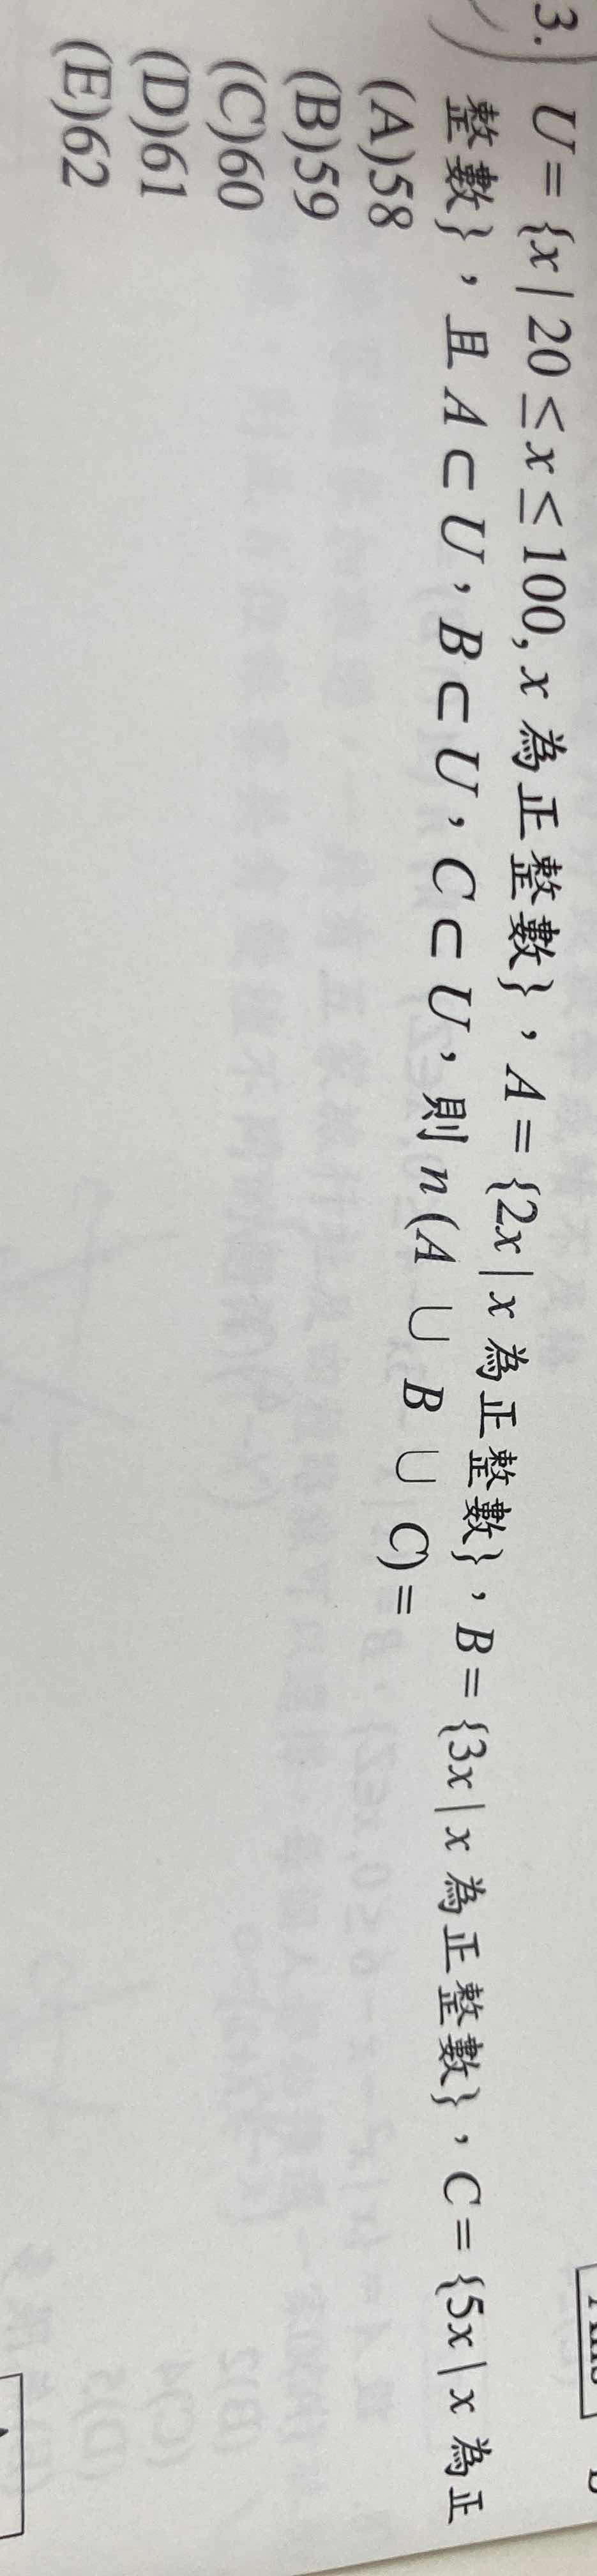 3. U = {x | 20 ≤ x ≤ 100, x 為正整數},A = {2x | x 為正整數},B = {3x | x 為正整數},C = {5x | x 為正
整數},且 A ⊂ U,B ⊂ U,C ⊂ U,則 n (A ∪ B ∪ C) =
(A)58
(B)59
(C)60
(D)61
(E)62